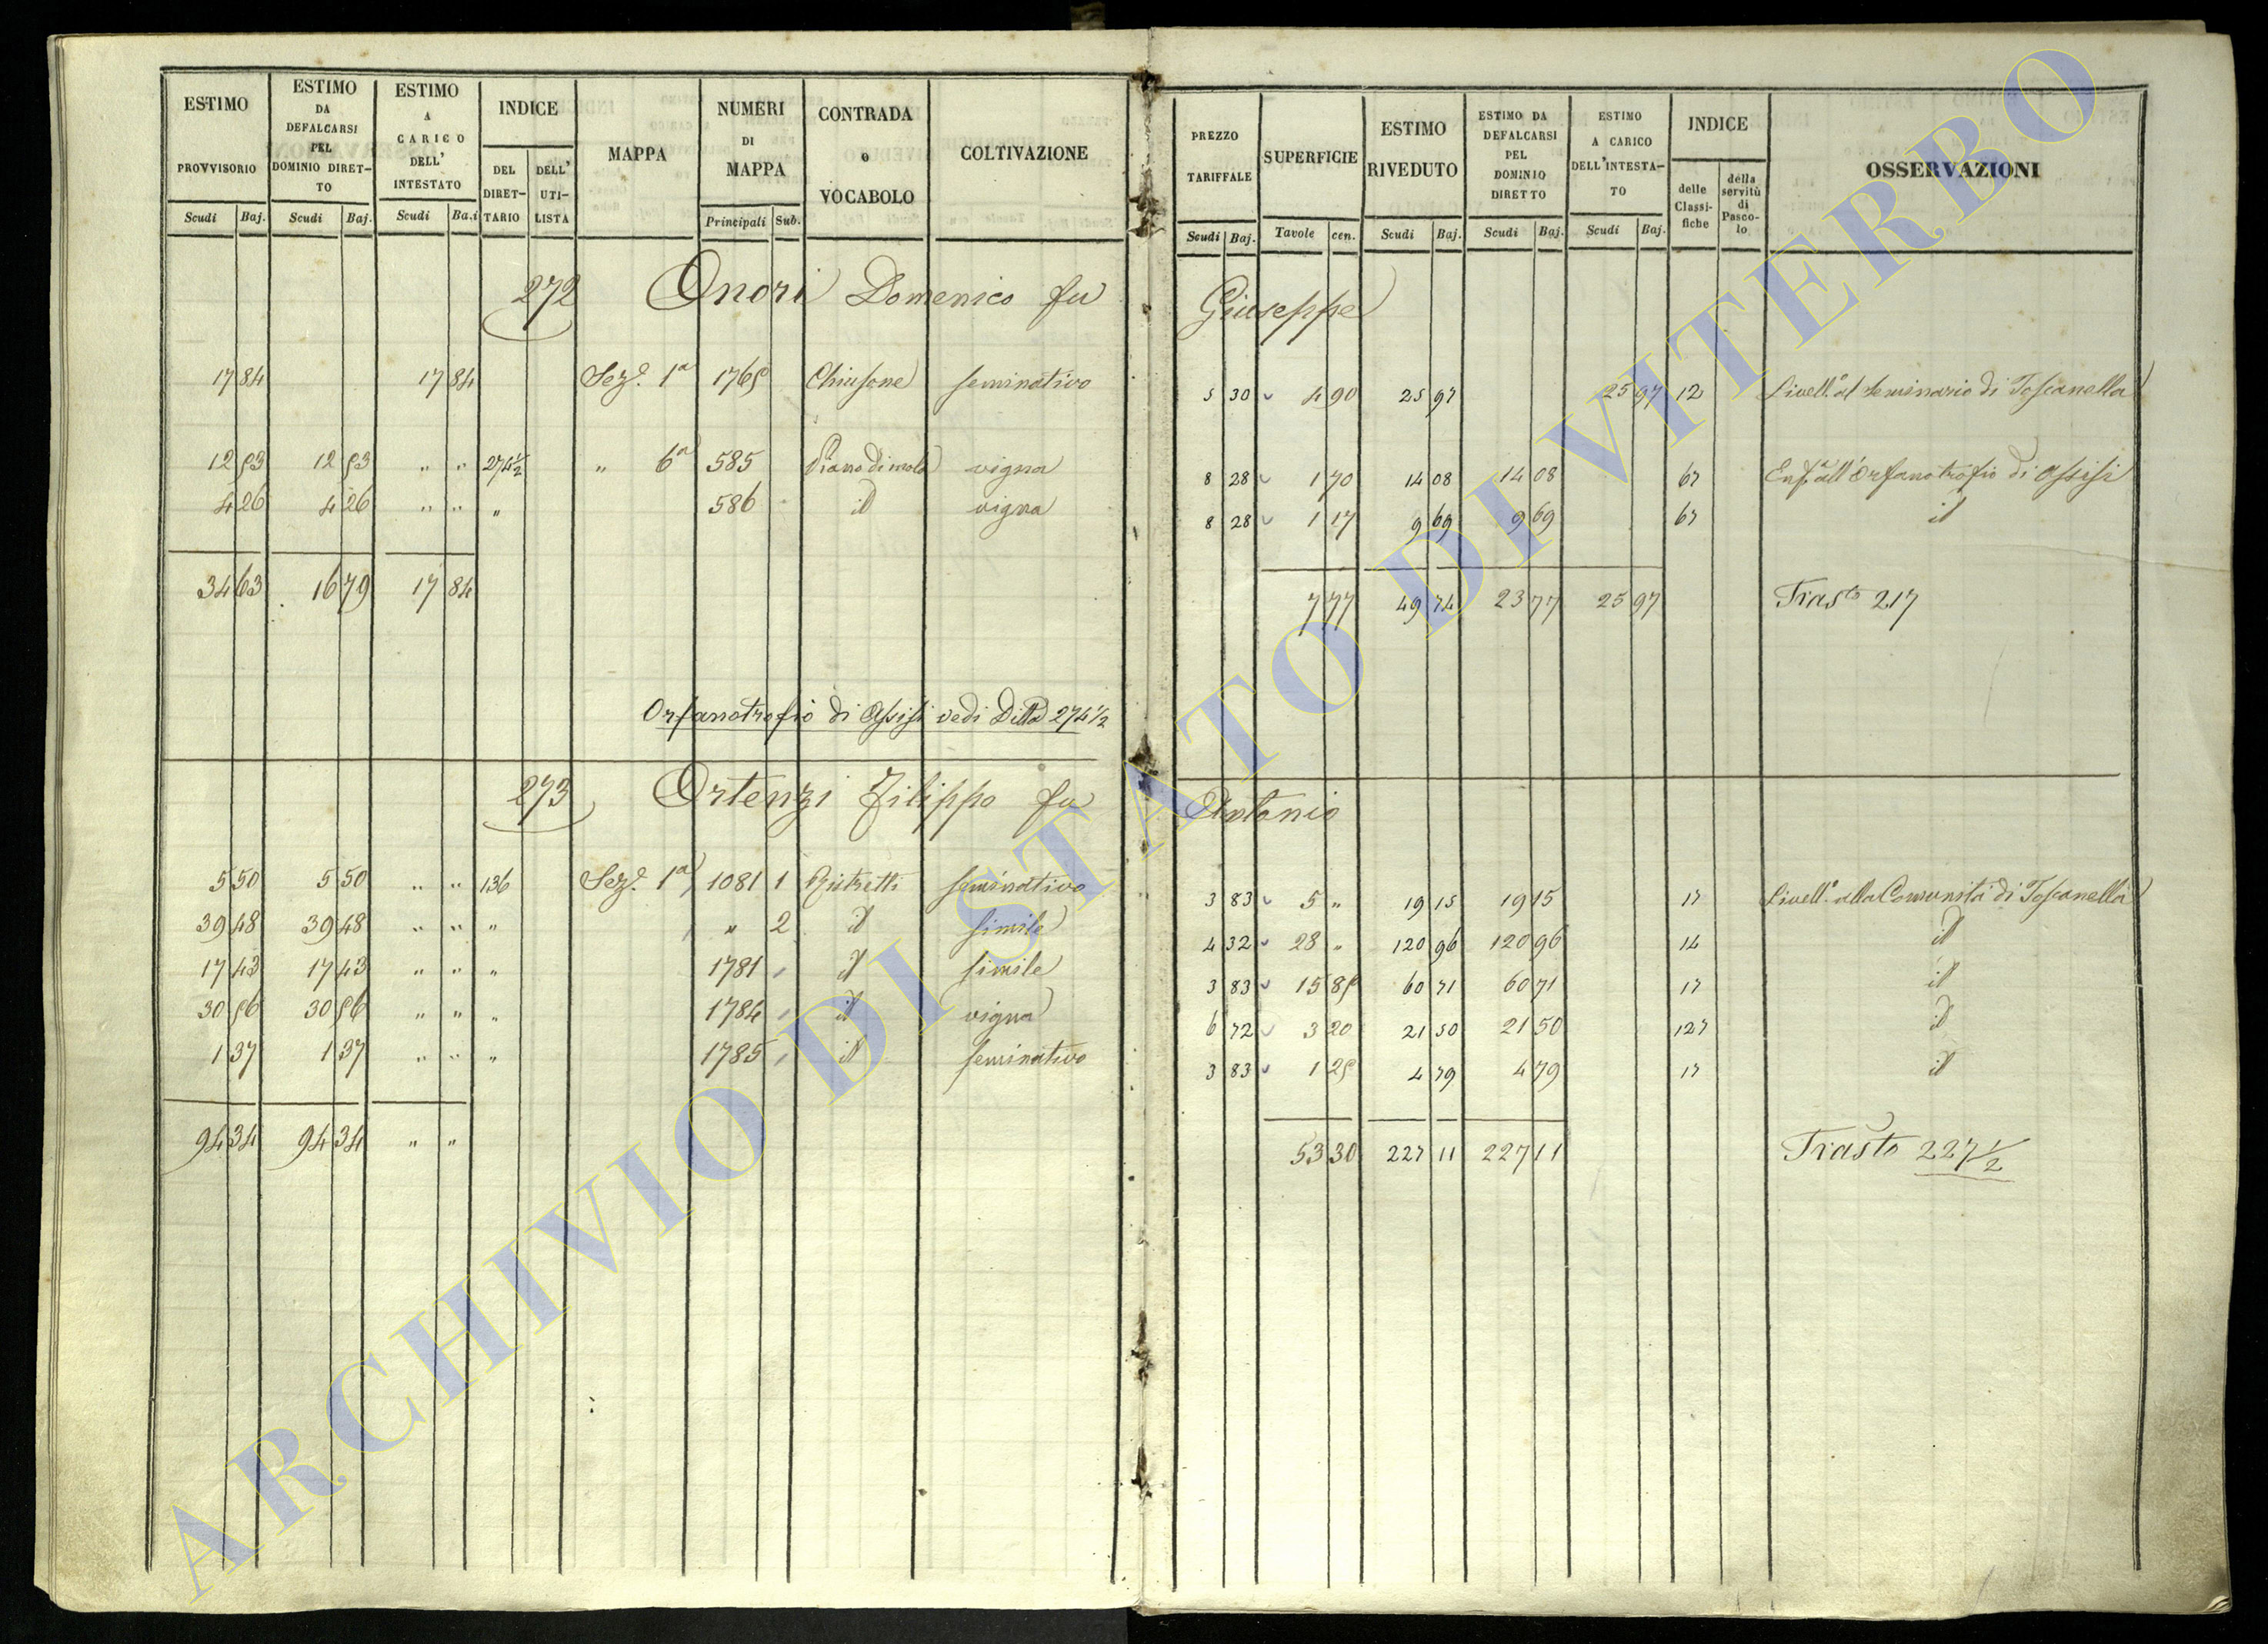 ESTIMO PROVVISORIO Scudi Baj.
ESTIMO DA DEFALCARSI PEL DOMINIO DIRET-TO Scudi Baj.
ESTIMO A CARICO DELL' INTESTATO Scudi Ba,i
INDICE DEL DIRET-TARIO DELL' UTI-LISTA
MAPPA
NUMERI DI MAPPA Principali Sub.
CONTRADA o VOCABOLO
COLTIVAZIONE
PREZZO TARIFFALE Scudi Baj.
SUPERFICIE Tavole cen.
ESTIMO RIVEDUTO Scudi Baj.
ESTIMO DA DEFALCARSI PEL DOMINIO DIRETTO Scudi Baj.
ESTIMO A CARICO DELL'INTESTA-TO Scudi Baj.
INDICE delle Classi-fiche della servitù di Pasco-lo
OSSERVAZIONI
272 Onori Domenico fu Giuseppe
17 84 17 84 Sez.e 1a 1765 Chiusone seminativo 5 30 4 90 25 97 25 97 12 Livell.o al Seminario di Toscanella
12 53 12 53 " " 274 1/2 " 6a 585 Piano di mola vigna 8 28 1 70 14 08 14 08 67 Enf.a all'Orfanotrofio di Assisi
4 26 4 26 " " " 586 id vigna 8 28 1 17 9 69 9 69 67 id
34 63 16 79 17 84 7 77 49 74 23 77 25 97 Trasto 217
Orfanotrofio di Assisi vedi Ditta 274 1/2
273 Ortenzi Filippo fu Antonio
5 50 5 50 " " 136 Sez.e 1a 1081 1 seminativo 3 83 5 " 19 15 19 15 17 Livell.o alla Comunità di Toscanella
39 48 39 48 " " " " 2 id simile 4 32 28 " 120 96 120 96 14 id
17 43 17 43 " " " 1781 id simile 3 83 15 85 60 71 60 71 17 id
30 56 30 56 " " " 1784 id vigna 6 72 3 20 21 50 21 50 127 id
1 37 1 37 " " " 1785 id seminativo 3 83 1 25 4 79 4 79 17 id
94 34 94 34 " " 53 30 227 11 227 11 Trasto 227 1/2
ARCHIVIO DI STATO DI VITERBO